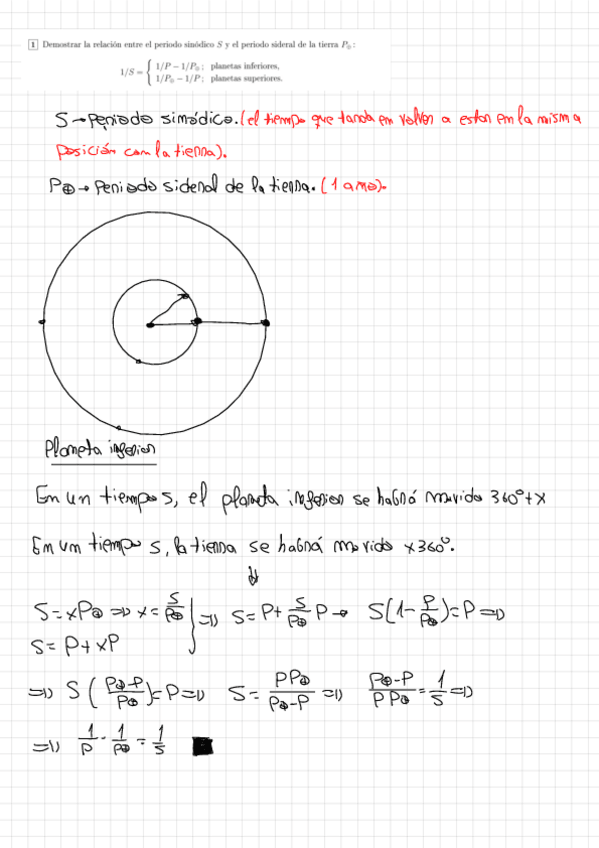 1 Demostrar la relación entre el periodo sinódico S y el periodo sideral de la tierra P⊕ :
1/S = { 1/P − 1/P⊕ ; planetas inferiores,
1/P⊕ − 1/P ; planetas superiores.
S → Periodo sinódico. (el tiempo que tarda en volver a estar en la misma
posición con la tierra).
P⊕ → Periodo sideral de la tierra. (1 ano).
Planeta inferior
En un tiempo s, el planeta inferior se habrá movido 360°+x
En un tiempo s, la tierra se habrá movido x360°.
⇓
S = xP⊕ ⇒ x = S/P⊕ } ⇒ S = P + S/P⊕ P → S(1 - P/P⊕) = P ⇒
S = P + xP
⇒ S (P⊕-P/P⊕) = P ⇒ S = PP⊕/P⊕-P ⇒ P⊕-P/PP⊕ = 1/S ⇒
⇒ 1/P - 1/P⊕ = 1/S ■